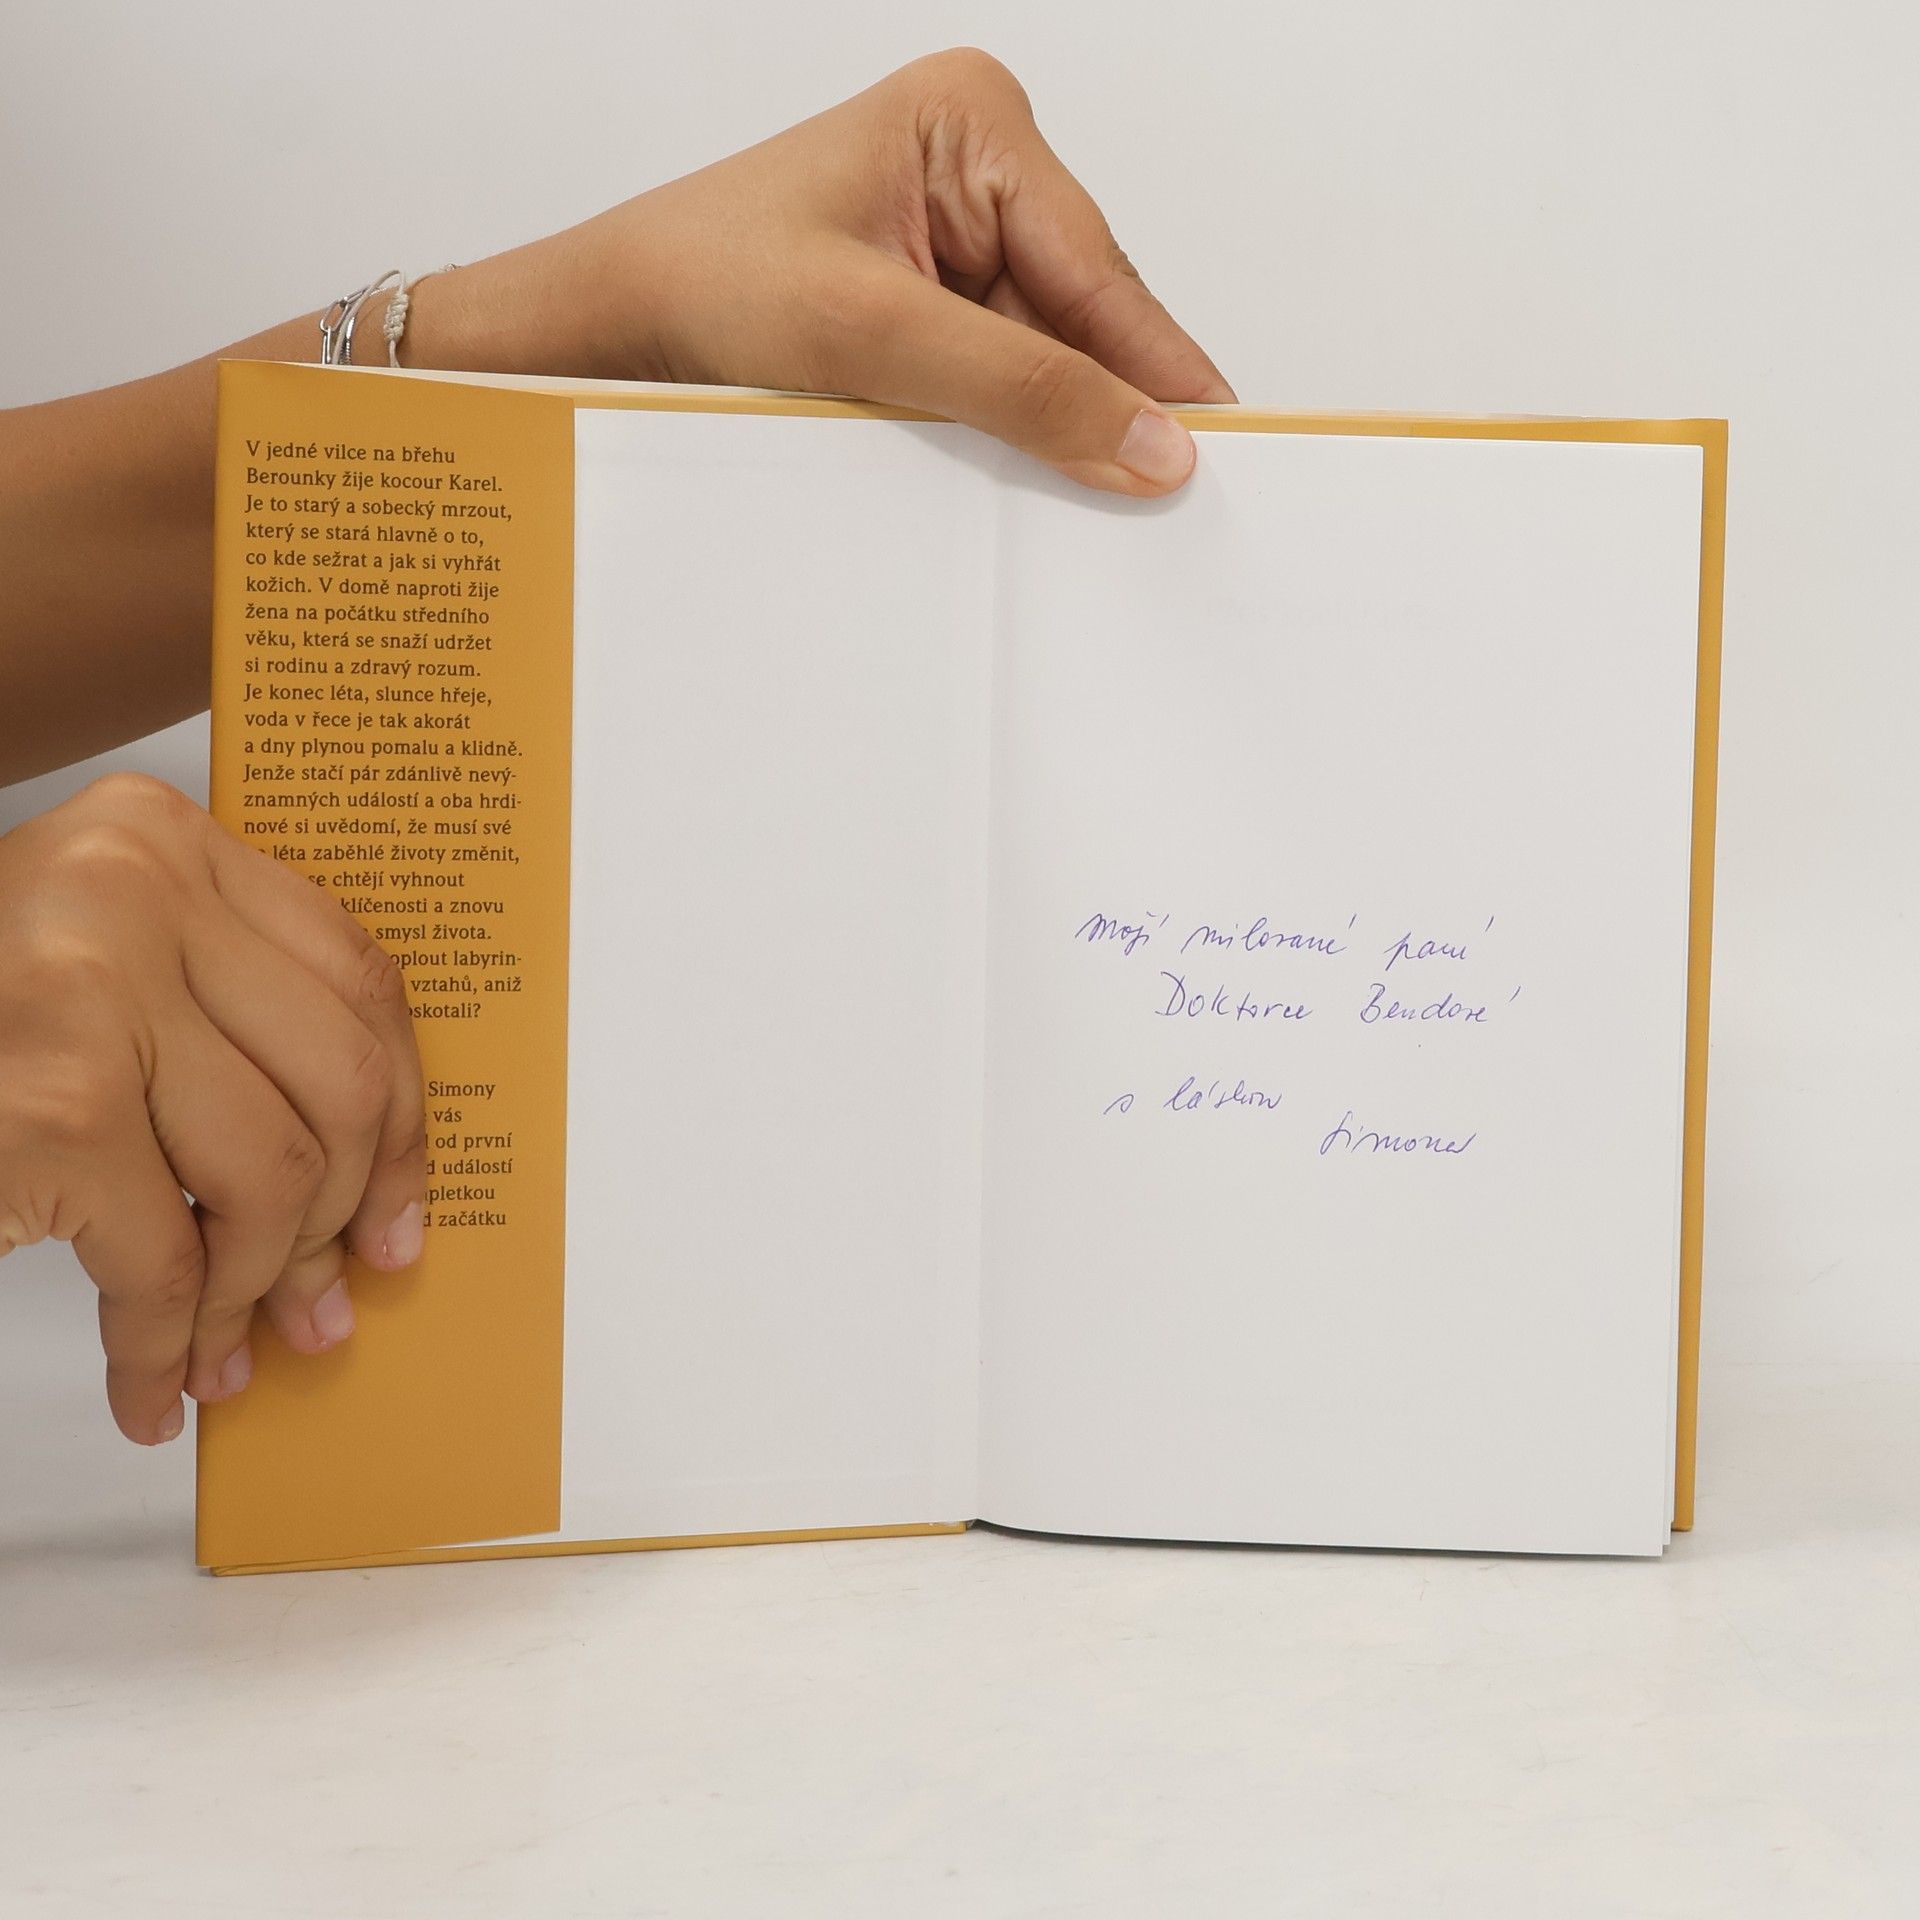 V jedné vilce na břehu
Berounky žije kocour Karel.
Je to starý a sobecký mrzout,
který se stará hlavně o to,
co kde sežrat a jak si vyhřát
kožich. V domě naproti žije
žena na počátku středního
věku, která se snaží udržet
si rodinu a zdravý rozum.
Je konec léta, slunce hřeje,
voda v řece je tak akorát
a dny plynou pomalu a klidně.
Jenže stačí pár zdánlivě nevý-
znamných událostí a oba hrdi-
nové si uvědomí, že musí své
léta zaběhlé životy změnit,
se chtějí vyhnout
klíčenosti a znovu
smysl života.
oplout labyrin-
vztahů, aniž
oskotali?
Simony
vás
od první
událostí
pletkou
začátku
Mojí milované paní
Doktorce Bendové
s láskou
Simona